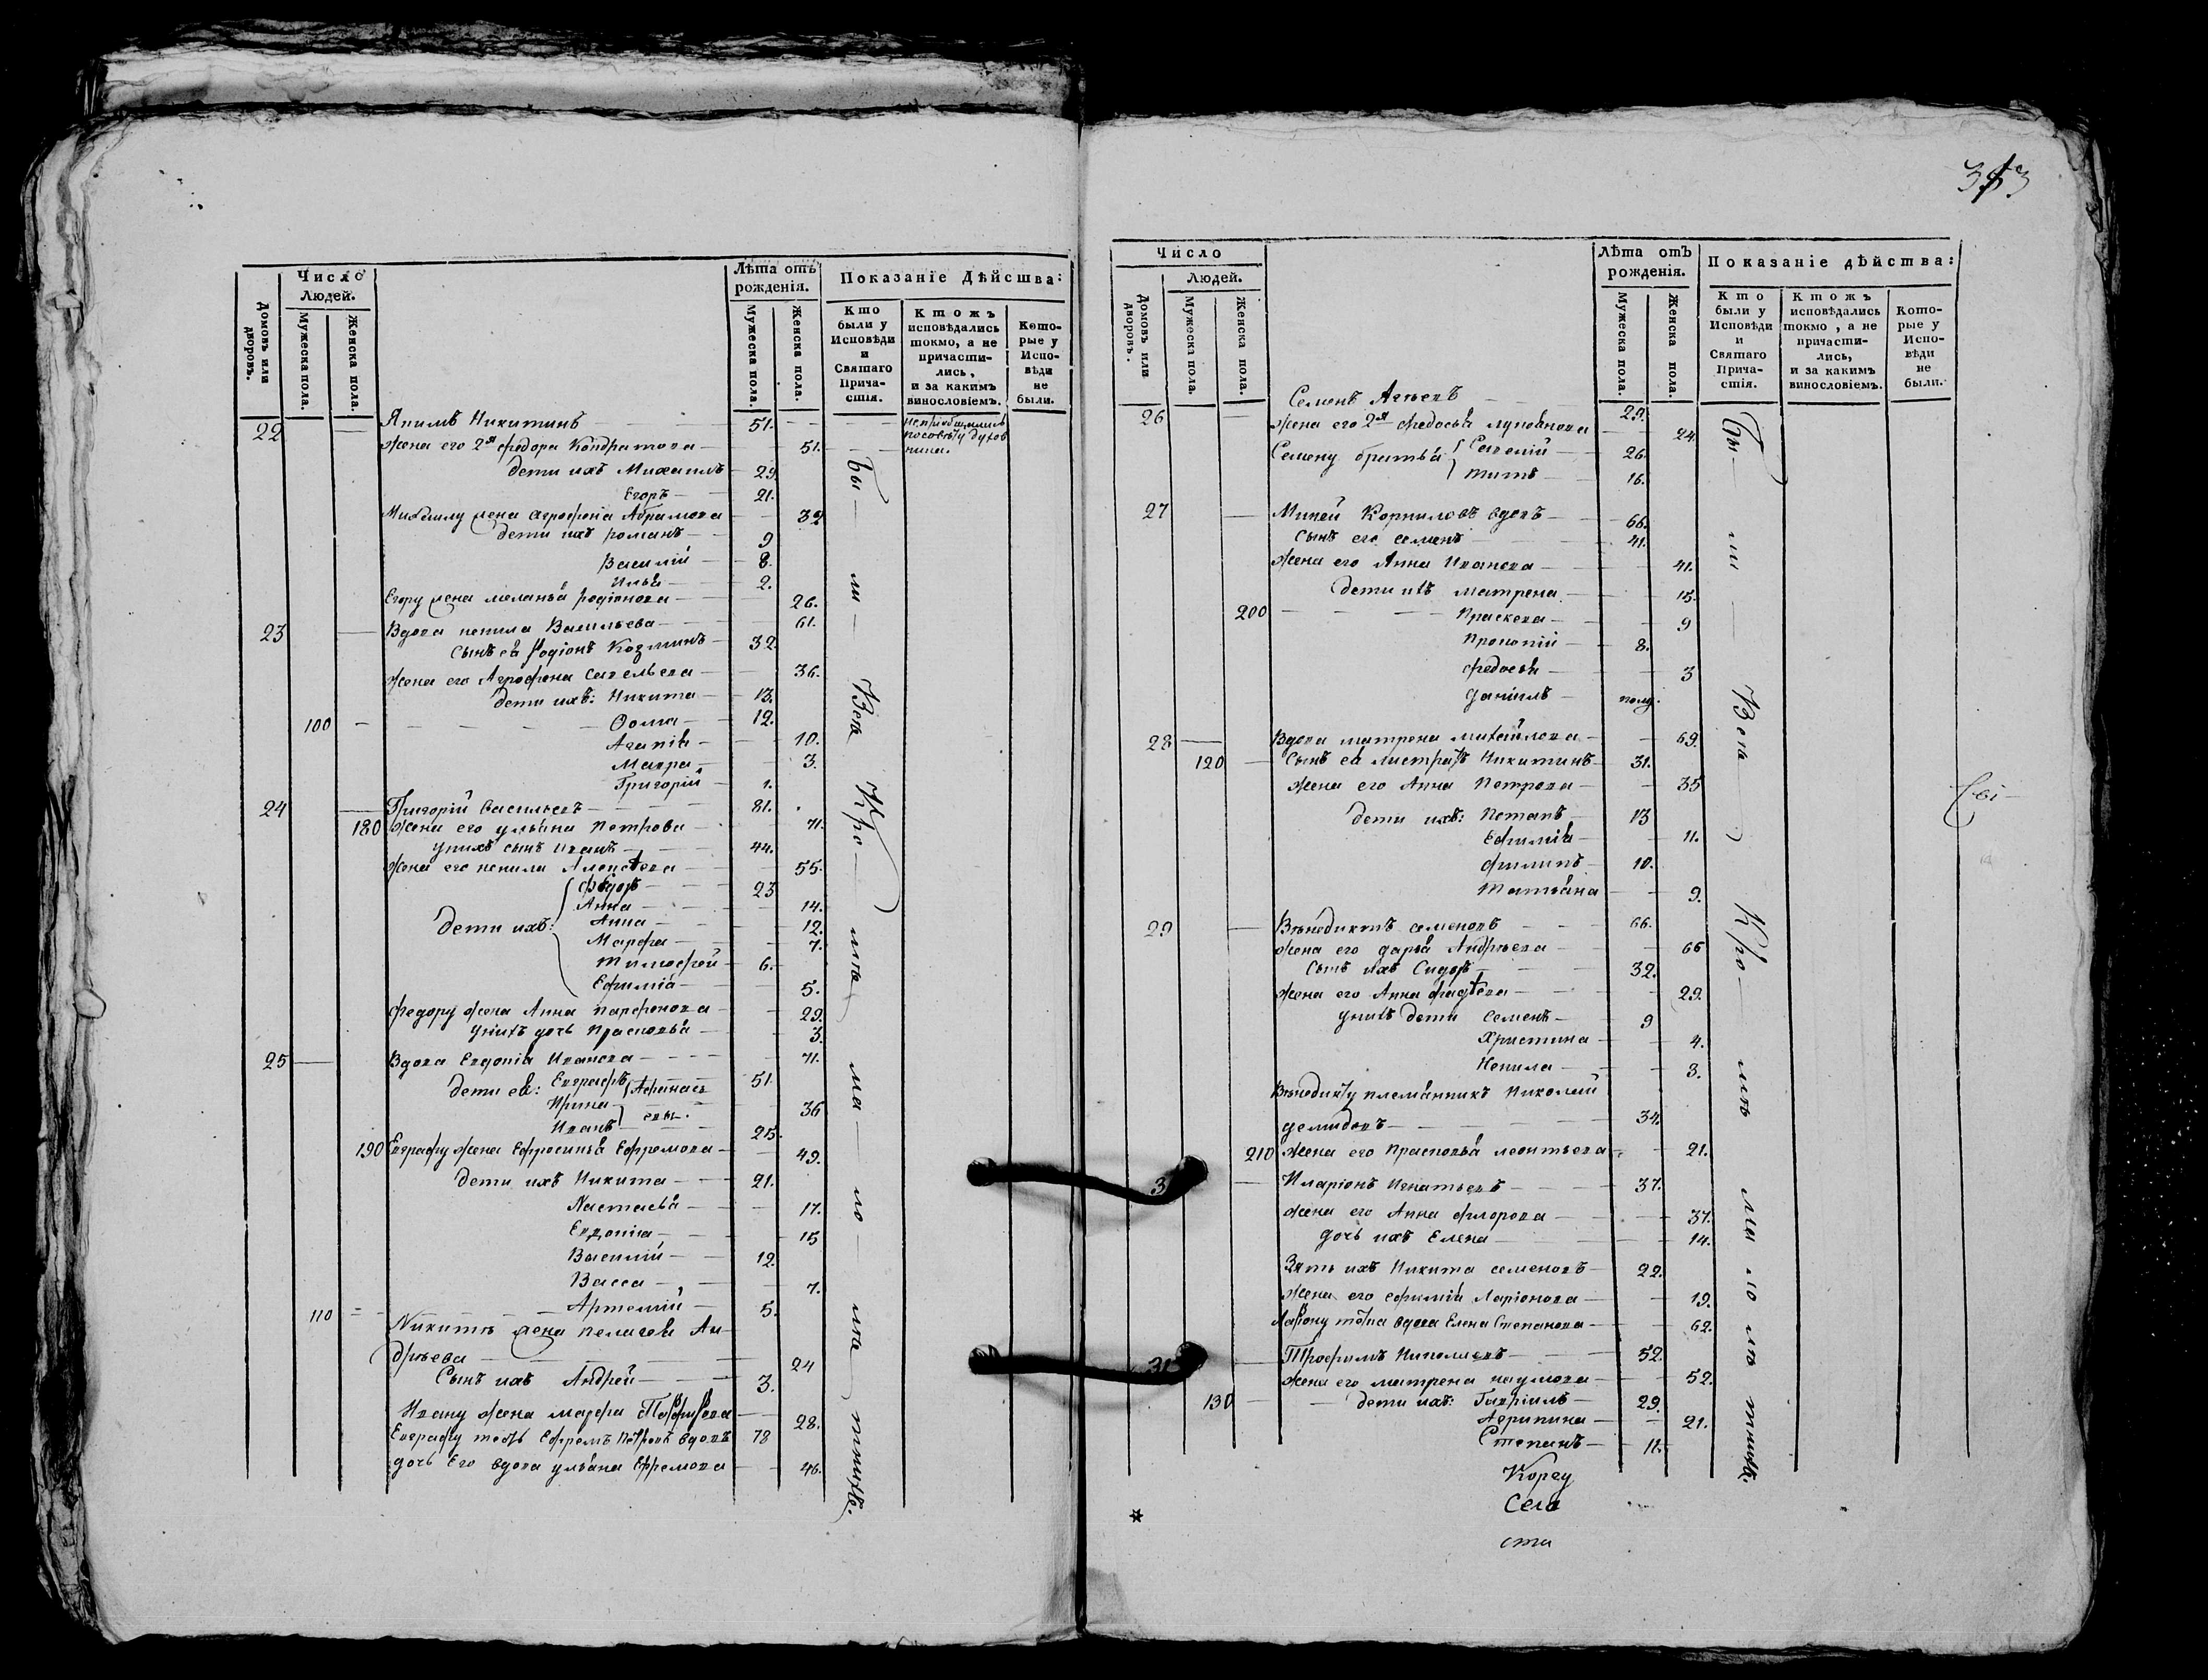 Число
Людей.
Домовъ или дворовъ.
Мужеска пола.
Женска пола.
Лѣта отъ рожденія.
Мужеска пола.
Женска пола.
Показаніе Дѣйства:
Кто были у Исповѣди и Святаго Прича- стія.
Ктожъ исповѣдались токмо, а не причасти- лись, и за какимъ винословіемъ.
Кото- рые у Испо- вѣди не были.
22 — Акимъ Никитинъ — 51.
Жена его 2я федора Кондратова — 51.
дети ихъ Михаилъ — 29.
Егоръ — 21.
Михаилу жена Агрофена Абрамова — 32
дети ихъ романъ — 9
Василий — 8.
Илья — 2.
Егору жена меланья родіонова — 26.
23 — Вдова ненила Васильева — 61.
Сынъ ея Родіонъ Козминъ — 32.
Жена его Агрофена савельева — 36.
дети ихъ: Никита — 13.
100 — Ѳома — 12.
Агапія — 10.
Мавра — 3.
Григорий — 1.
24 — Григорій Васильевъ — 81.
180 Жена его ульяна Петрова — 71.
унихъ сынъ Иванъ — 44.
Жена его ненила Алексѣева — 55.
дети ихъ: федоръ — 23
Анна — 14.
Анна — 12.
Марфа — 7.
тимофей — 6.
Ефимія — 5.
федору жена Анна парфенова — 29.
унихъ дочь Прасковья — 3.
25 — Вдова Евдокія Иванова — 71.
дети ея: Евграфъ — 51.
Ирина — 36
Иванъ — 25.
Афанась евы.
190 Евграфу жена Ефросинья Ефремова — 49.
дети ихъ Никита — 21.
Настасья — 17.
Евдокія — 15
Василий — 12.
Васса — 7.
110 — Артемий — 5.
Никитѣ жена пелагея Ан-
дрѣева — 24
Сынъ ихъ Андрей — 3.
Ивану жена марфа — 28.
Евграфу тесть Ефремъ Петровъ вдовъ 78
дочь Его вдова ульяна Ефремова — 46.
Бы — ли — Вси Кро — мѣ ма — ло — лѣт тнихъ.
353
Число
Людей.
Домовъ или дворовъ.
Мужеска пола.
Женска пола.
Лѣта отъ рожденія.
Мужеска пола.
Женска пола.
Показаніе дѣйства:
Кто были у Исповѣди и Святаго Прича- стія.
Ктожъ исповѣдались токмо, а не причасти- лись, и за какимъ винословіемъ.
Кото- рые у Испо- вѣди не были.
26 — Семенъ — 29.
Жена его 2я федосья — 24.
Семену братья Савелий — 26.
титъ — 16.
27 — Миней Корниловъ вдовъ — 66.
Сынъ его семенъ — 41.
Жена его Анна Иванова — 41.
дети ихъ матрена — 15.
200 — Праскева — 9
Прокопій — 8.
федосья — 3
даніилъ — полу.
28 — Вдова матрена михайлова — 69.
120 — Сынъ ея Никитинъ — 31.
Жена его Анна Петрова — 35
дети ихъ: Потапъ — 13
Ефимія — 11.
филипъ — 10.
татьяна — 9.
29 — Венедиктъ семеновъ — 66.
Жена его дарья Андрѣева — 66
Сынъ ихъ Сидоръ — 32.
Жена его Анна фадѣева — 29.
унихъ дети Семенъ — 9
Христина — 4.
Ненила — 3.
Венедикту племянникъ Николай
демидовъ — 34.
210 Жена его Прасковья леонтьева — 21.
3 — Иларіонъ Игнатьевъ — 37.
Жена его Анна флорова — 37.
дочь ихъ Елена — 14.
Зять ихъ Никита семеновъ — 22.
Жена его ефимія Ларіонова — 19.
Ларіону тёща вдова Елена Степанова — 62.
31 — Трофимъ Николаевъ — 52.
Жена его матрена наумова — 52.
130 — дети ихъ: Гавріилъ — 29.
Агрипина — 21.
Степанъ — 11.
Бы — ли — Вси Кро — мѣ ма ло лѣт тнихъ.
Сви-
Кореу
Села
ста